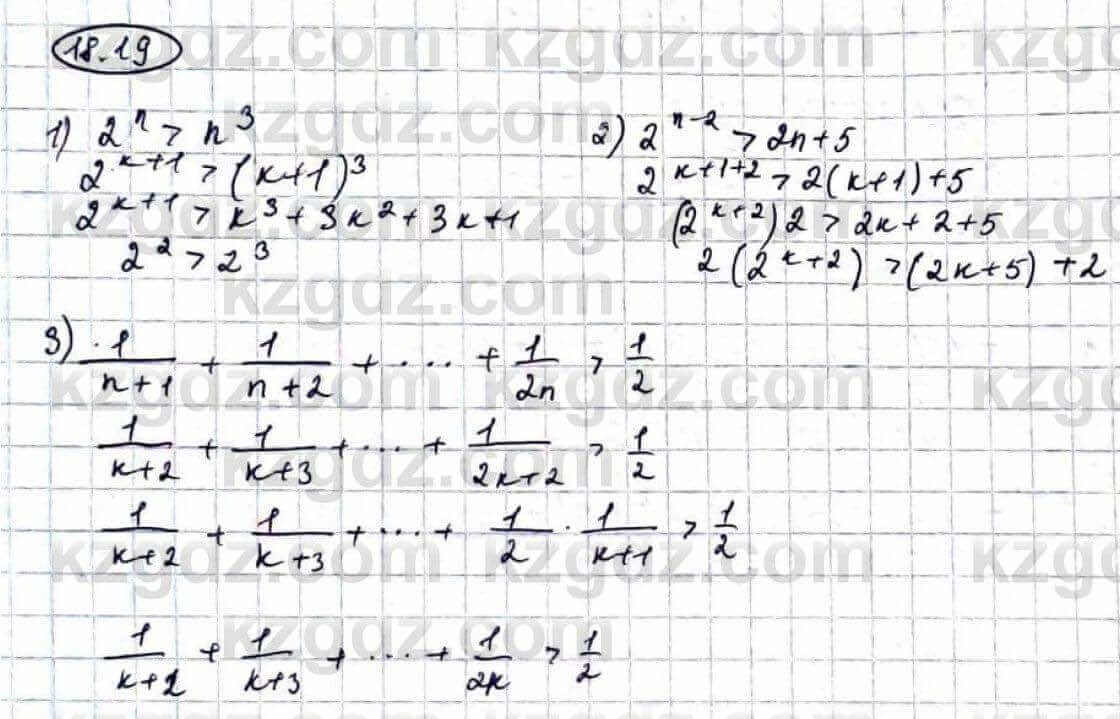 18.19
1) 2^n > n^3
2^{k+1} > (k+1)^3
2^{k+1} > k^3 + 3k^2 + 3k + 1
2^2 > 2^3
2) 2^{n-2} > 2n+5
2^{k+1+2} > 2(k+1)+5
(2^{k+2})2 > 2k+2+5
2(2^{k+2}) > (2k+5)+2
3) \frac{1}{n+1} + \frac{1}{n+2} + .... + \frac{1}{2n} > \frac{1}{2}
\frac{1}{k+2} + \frac{1}{k+3} + ... + \frac{1}{2k+2} > \frac{1}{2}
\frac{1}{k+2} + \frac{1}{k+3} + ... + \frac{1}{2} \cdot \frac{1}{k+1} > \frac{1}{2}
\frac{1}{k+2} + \frac{1}{k+3} + ... + \frac{1}{2k} > \frac{1}{2}
kzgdz.com